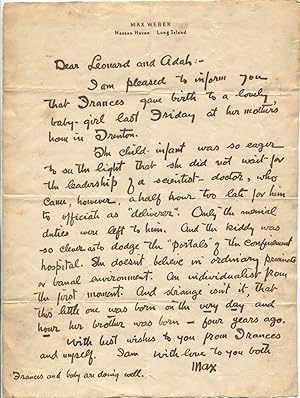 MAX WEBER
Nassau Haven Long Island
Dear Leonard and Adah:-
I am pleased to inform you
that Frances gave birth to a lovely
baby-girl last Friday at her mothers
home in Trenton.
The child-infant was so eager
to see the light that she did not wait for
the leadership of a scientist-doctor, who
came, however, a half hour too late for him
to officiate as "deliverer". Only the menial
duties were left to him. And the kiddy was
so clever as to dodge the "portals" of the confinement
hospital. She doesnt believe in ordinary
or banal environment. An individualist from
the first moment. And strange isn't it, that
this little one was born on the very day and
hour her brother was born — four years ago.
With best wishes to you from Frances
and myself. I am with love to you both
Max
Frances and baby are doing well.